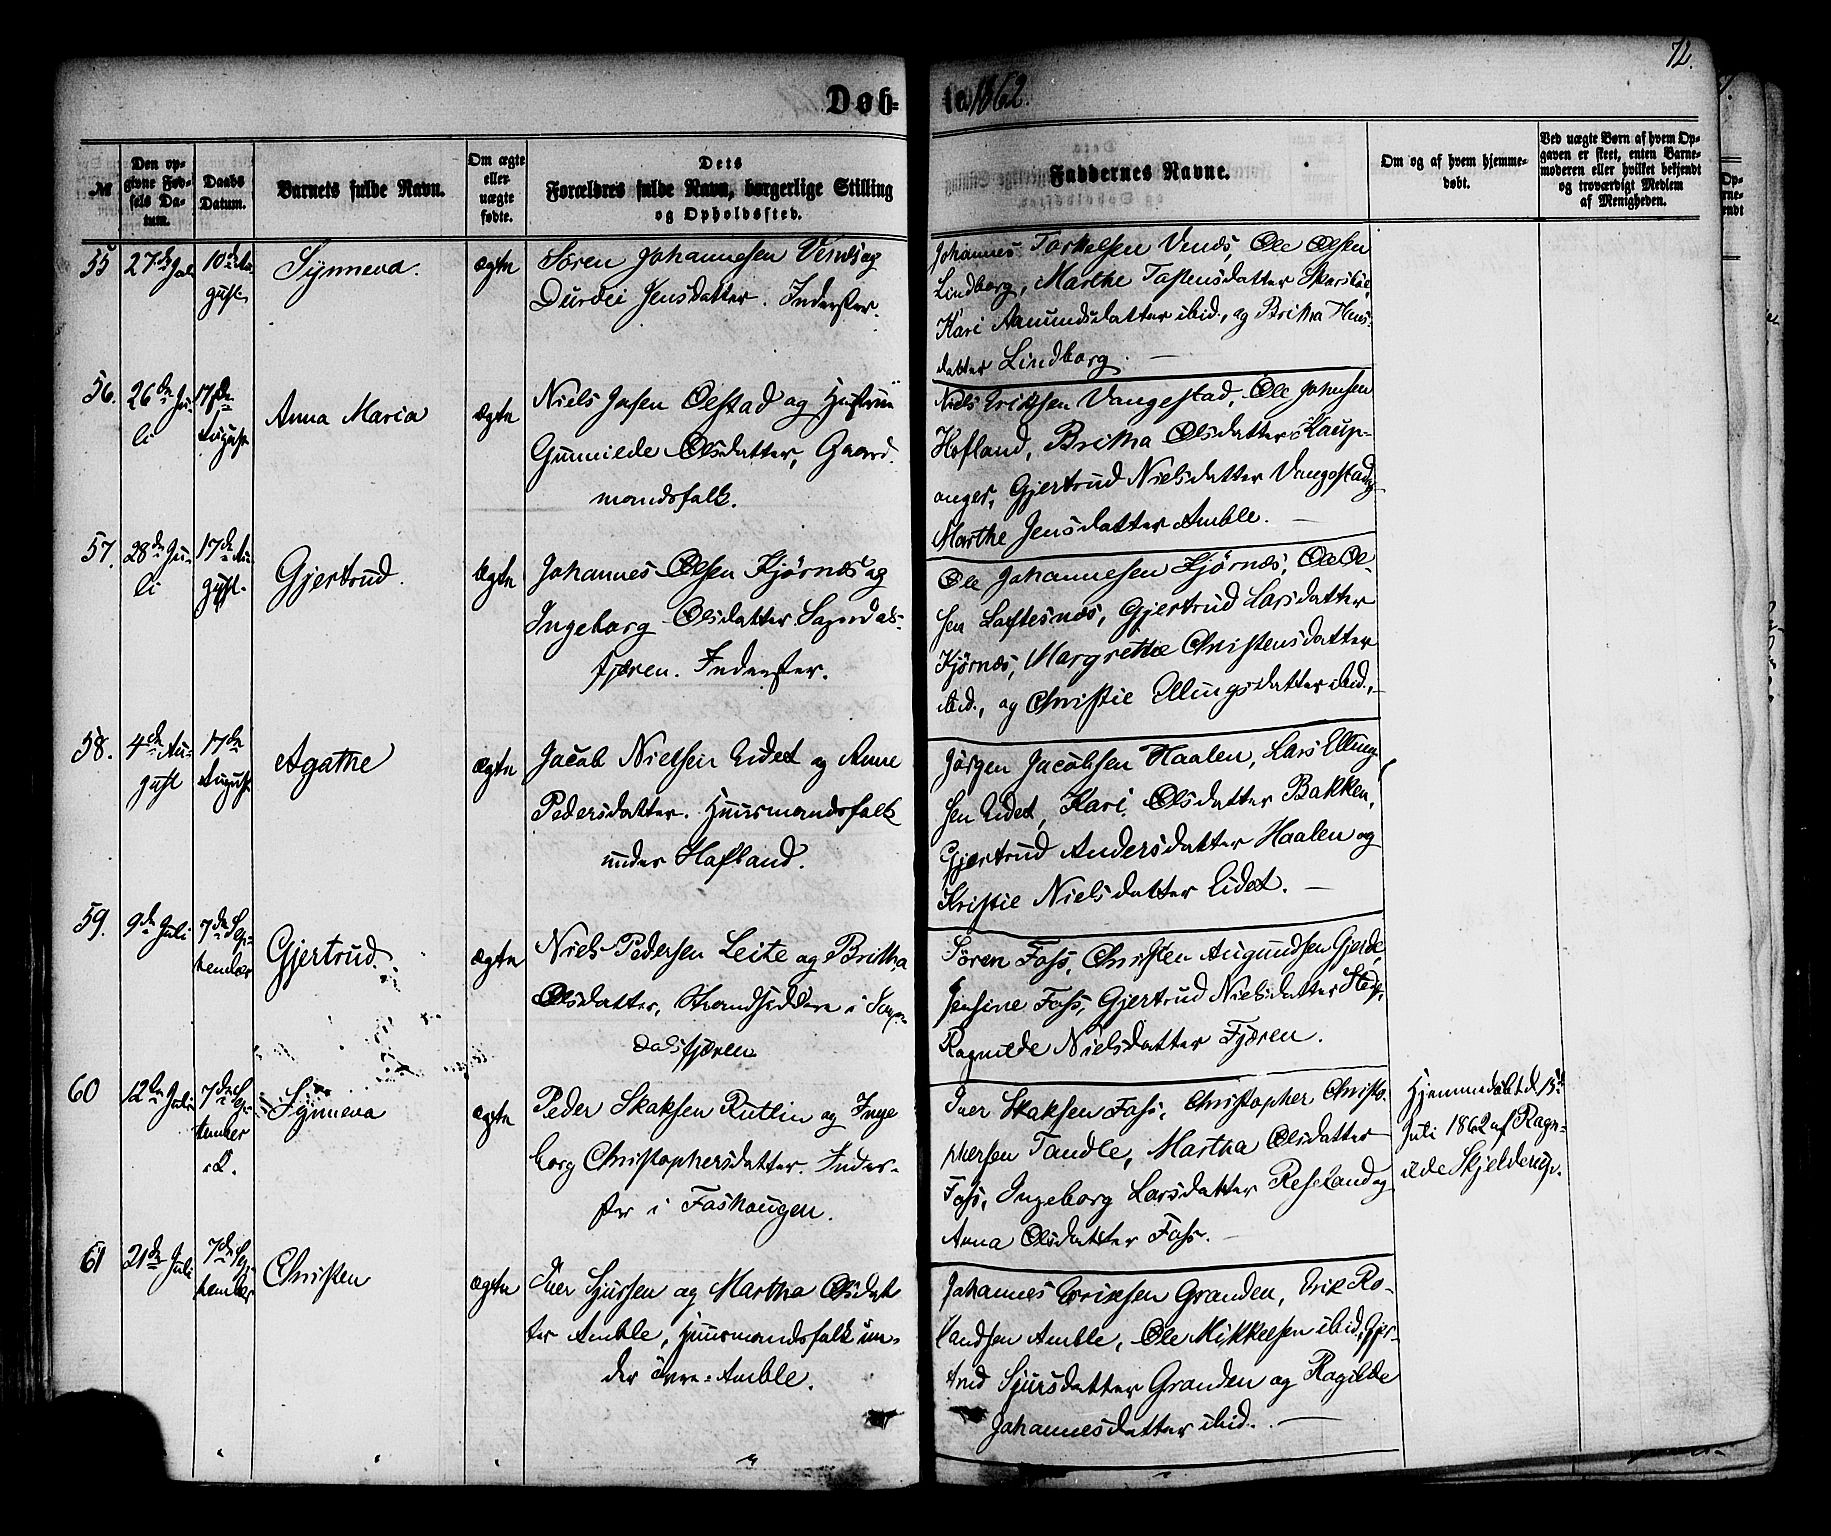 72.
Døb-
te 1862.
№
Den op-
givne Fød-
sels Da-
tum.
Daabs
Datum.
Barnets fulde Navn.
Om ægte
eller
uægte
fødte.
Dets
Forældres fulde Navn, borgerlige Stilling
og Opholdssted.
Faddernes Navne.
Om og af hvem hjemme-
døbt.
Ved uægte Børn af hvem Op-
gaven er skeet, enten Barne-
moderen eller hvilket bekjendt
og troværdigt Medlem
af Menigheden.
55
27de Juli
10de Au-
gust
Synneva.
ægte
Søren Johannesen Vends og
Durdei Jensdatter. Inderster.
Johannes Torkelsen Vends, Ole Olsen
Lindborg, Marthe Tostensdatter
Kari Amundsdatter ibid., og Britha
datter Lindborg.
56.
26de Ju-
li
17de
August
Anna Maria
ægte
Niels Olstad og Hustrue
Gunnilde Olsdatter, Gaard-
mandsfolk.
Niels Eriksen Vangestad, Ole Johnsen
Hofland, Britha Olsdatter Kaup-
anger, Gjertrud Nielsdatter Vangestad,
Marthe Jensdatter Amble.
57.
28de Ju-
li
17de Au-
gust.
Gjertrud.
ægte
Johannes Olsen Kjørnæs og
Ingeborg Olsdatter Sogndals-
fjæren. Inderster.
Ole Johannesen Kjørnæs, Ole Ol-
sen Loftesnæs, Gjertrud Larsdatter
Kjørnæs, Margrethe Christensdatter
ibid., og Christie Ellingsdatter ibid.,
58.
4de Au-
gust
17de
August
Agathe
ægte
Jacob Nielsen Eidet og Anne
Pedersdatter. Huusmandsfolk
under Hafland.
Jørgen Jacobsen Haalen, Lars Elling-
sen Eidet, Kari Olsdatter Bakken,
Gjertrud Andersdatter Haalen og
Kristie Nielsdatter Eidet.
59.
9de Juli
7de Sep-
tember
Gjertrud.
ægte
Niels Pedersen Leite og Britha
Olsdatter, Strandsiddere i Sogn-
dalsfjæren
Søren Foss, Christen Augundsen Gjeide,
Jensine Foss, Gjertrud Nielsdatter
Ragnilde Nielsdatter Fjæren.
60
12te Juli
7de Sep-
tember
Synneva
ægte
Peder Skaksen Rutlin og Inge
borg Christophersdatter. Inder-
ster i Foshaugen.
Iver Skaksen Foss, Christopher Christo-
phersen Tandle, Martha Olsdatter
Foss, Ingeborg Larsdatter Reseland og
Anna Olsdatter Foss.
Hjemmedøbt d. 13de
Juli 1862 af Ragn-
ilde Skjelderup.
61
21de Juli
7de Sep-
tember
Christen
ægte
Iver Sjursen og Martha Olsdat
ter Amble, Huusmandsfolk un-
der øvre-Amble.
Johannes Eriksen Granden, Erik Ro-
landsen Amble, Ole Mikkelsen ibid., Gjer-
trud Sjursdatter Granden og Ragilde
Johannesdatter ibid.